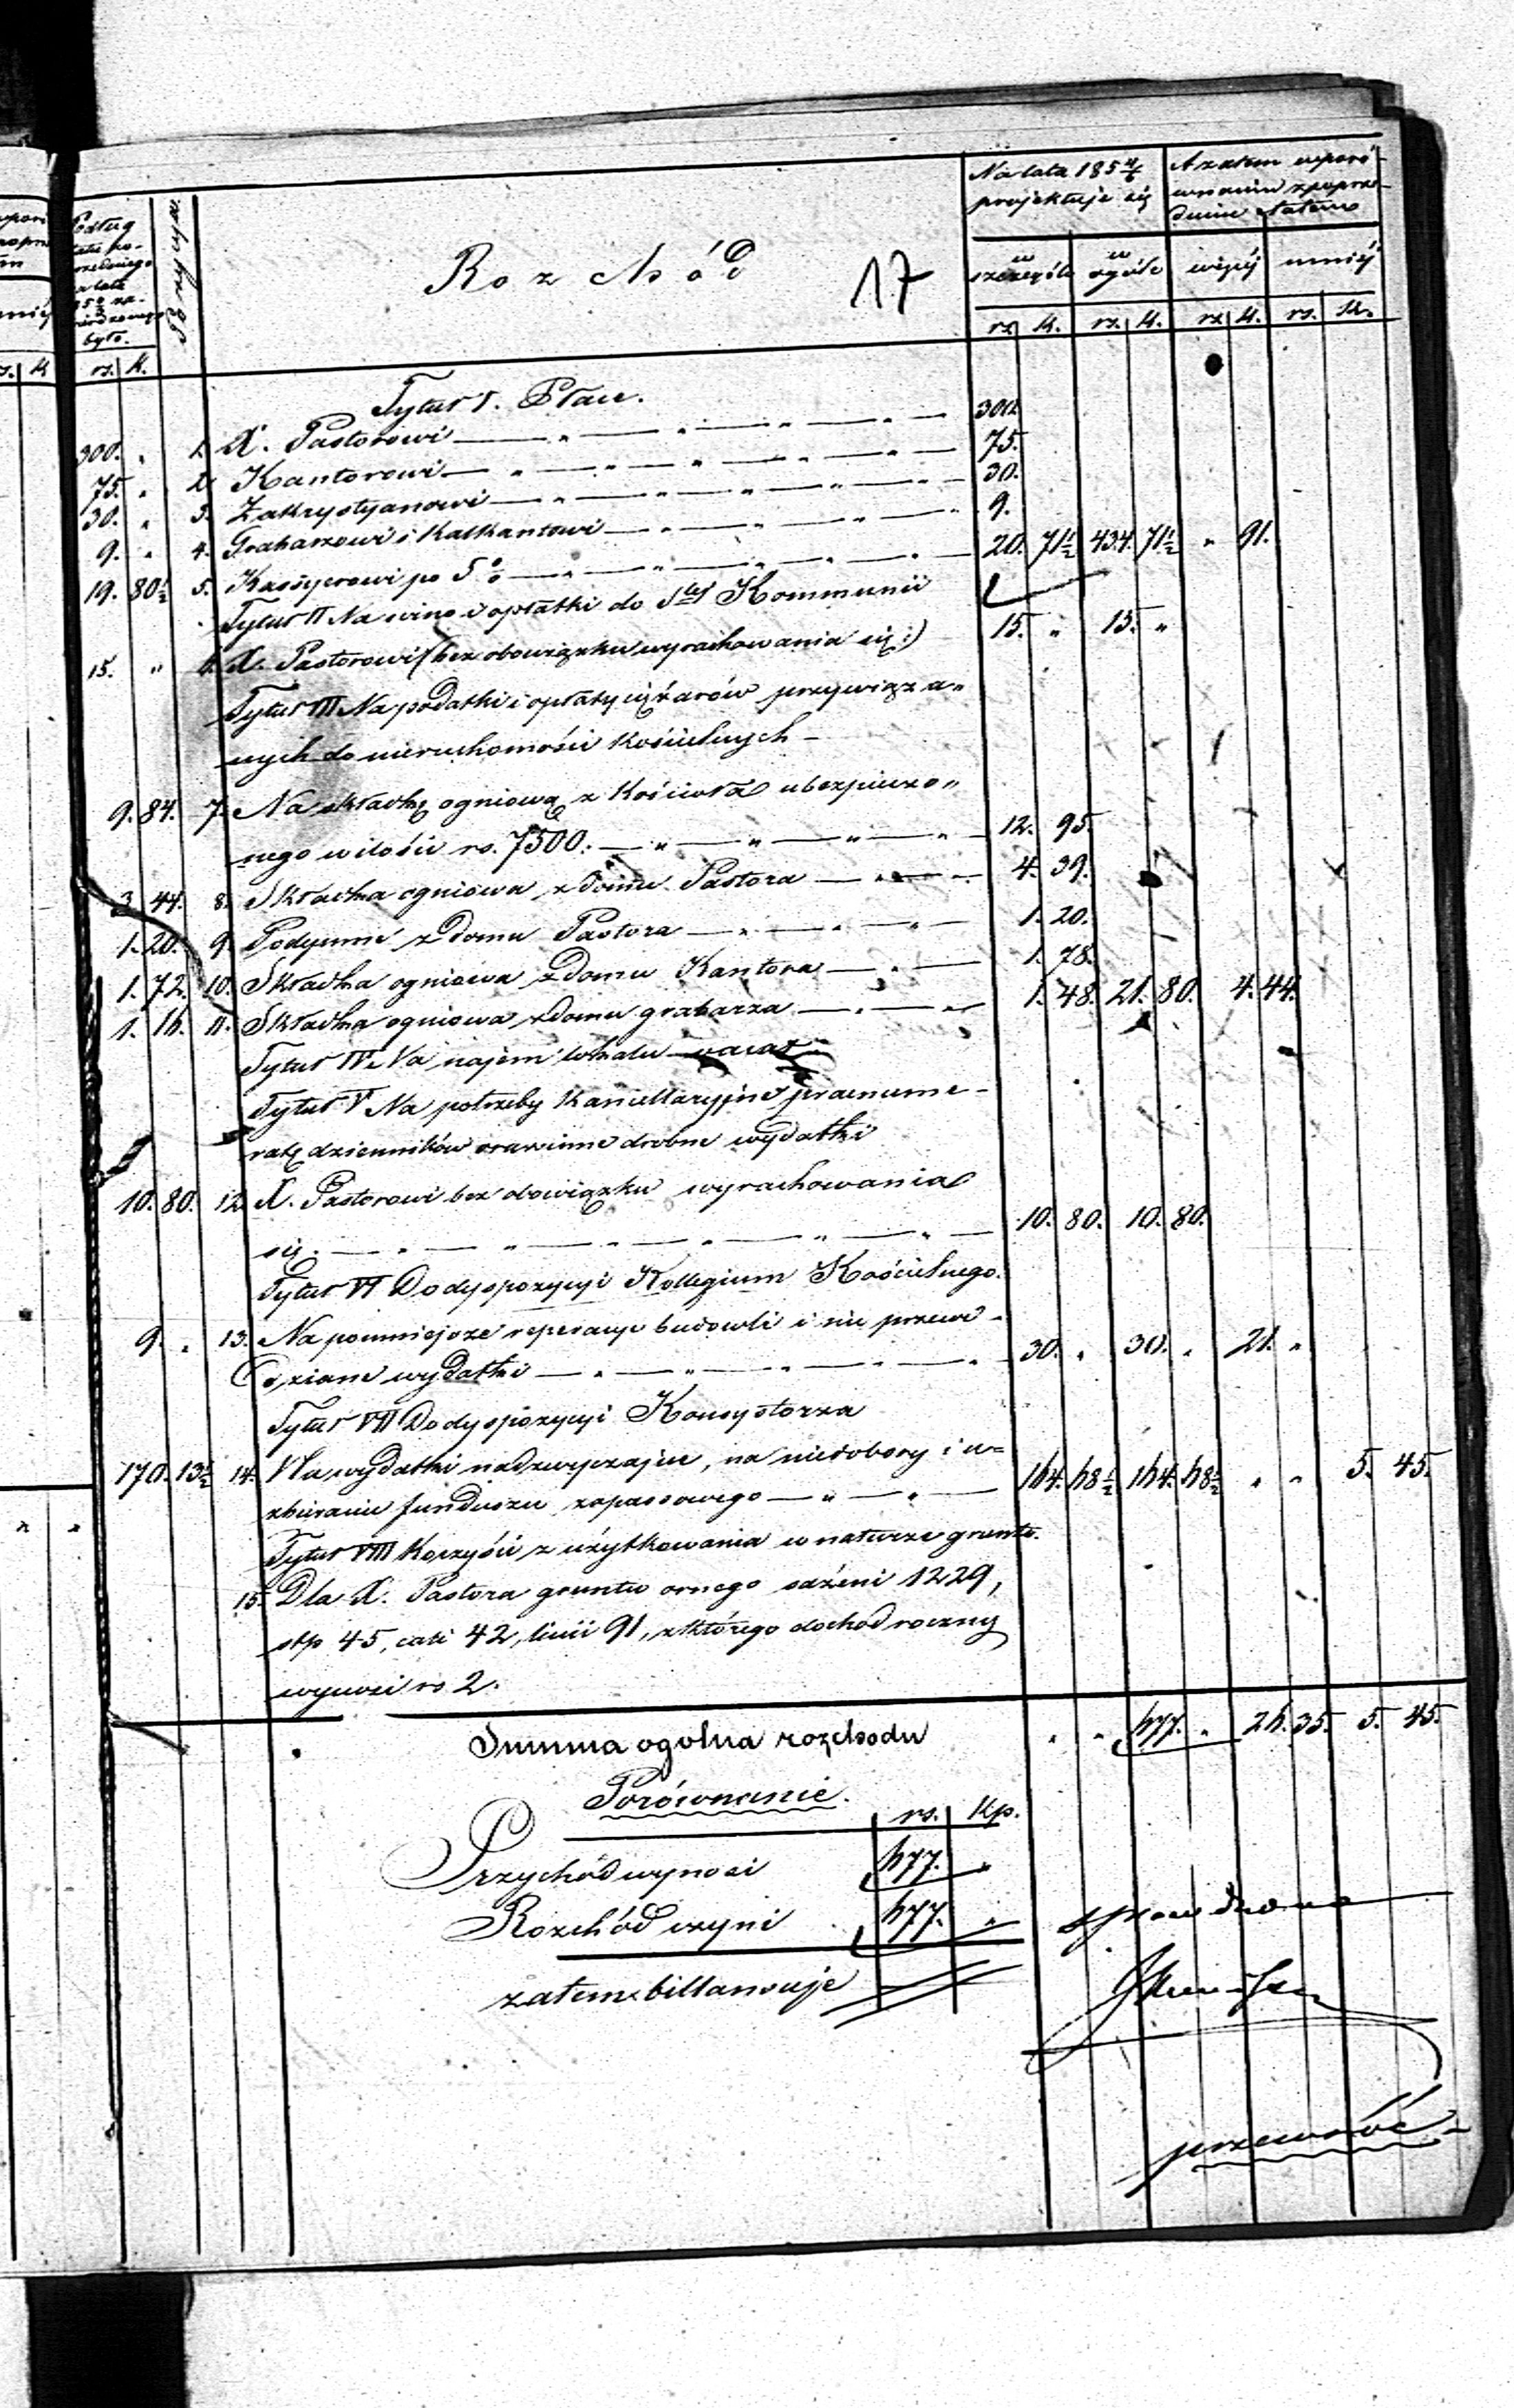 Na lata 185 4/6 projektuje się
A zatem w porównaniu z poprzednim etatem
Podług etatu poprzedniego na lata 185 było.
Rozchód 17
w szczególe w ogóle więcej mniej
rs. k. rs. k. rs. k. rs. k.
rs. k.
Tytuł I. Płace.
300. " 1. X. Pastorowi — " — " — 300.
75. " 2. Kantorowi — " — " — 75.
30. " 3. Zakrystyanowi — " — " — 30.
9. " 4. Grabarzowi i Kalkantowi — " — " 9.
19. 80½ 5. Kassyerowi po 5% — " — " — 20. 71½ 434. 71½ " 91.
Tytuł II Na wino i opłatki do Stej Kommunii
15. " 6. X. Pastorowi (bez obowiązku wyrachowania się:) 15. " 15. "
Tytuł III Na podatki i opłaty ciężarów przywiąza„
nych do nieruchomości Kościelnych —
9. 84. 7. Na składkę ogniową z Kościoła ubezpieczo„
nego w ilości rs. 7500. — " — " — 12. 95.
3. 44. 8. Składka ogniowa z domu Pastora — " — 4. 39.
1. 20. 9. Podymne z domu Pastora — " — " — 1. 20.
1. 72. 10. Składka ogniowa z domu Kantora — " — 1. 78.
1. 16. 11. Składka ogniowa z domu grabarza — " — 1. 48. 21. 80. 4. 44.
Tytuł IV. Na najem lokalu vacat
Tytuł V Na potrzeby Kancellaryjne praenume-
ratę dzienników oraz inne drobne wydatki
10. 80. 12. X. Pastorowi bez obowiązku wyrachowania
się. — " — " — 10. 80. 10. 80.
Tytuł VI Do dyspozycyi Kollegium Kościelnego.
9. " 13. Na pomniejsze reperacye budowli i nie przewi-
dziane wydatki — " — " — 30. " 30. " 21. "
Tytuł VII Do dyspozycyi Konsystorza
170. 13½ 14. Na wydatki nadzwyczajne, na niedobory i u=
zbieranie funduszu zapassowego — " — " — 164. 68½ 164. 68½ " " 5. 45.
Tytuł VIII Korzyści z użytkowania w naturze gruntu.
15. Dla X. Pastora gruntu ornego sążeni 1229,
stp 45, cali 42, linii 91, z którego dochód roczny
wynosi rs 2.
Summa ogolna rozchodu " " 677. " 26. 35. 5. 45.
Porównanie.
rs. Kp.
Przychód wynosi 677. "
Rozchód czyni 677. "
zatem billansuje
sprawdzono
przewróć